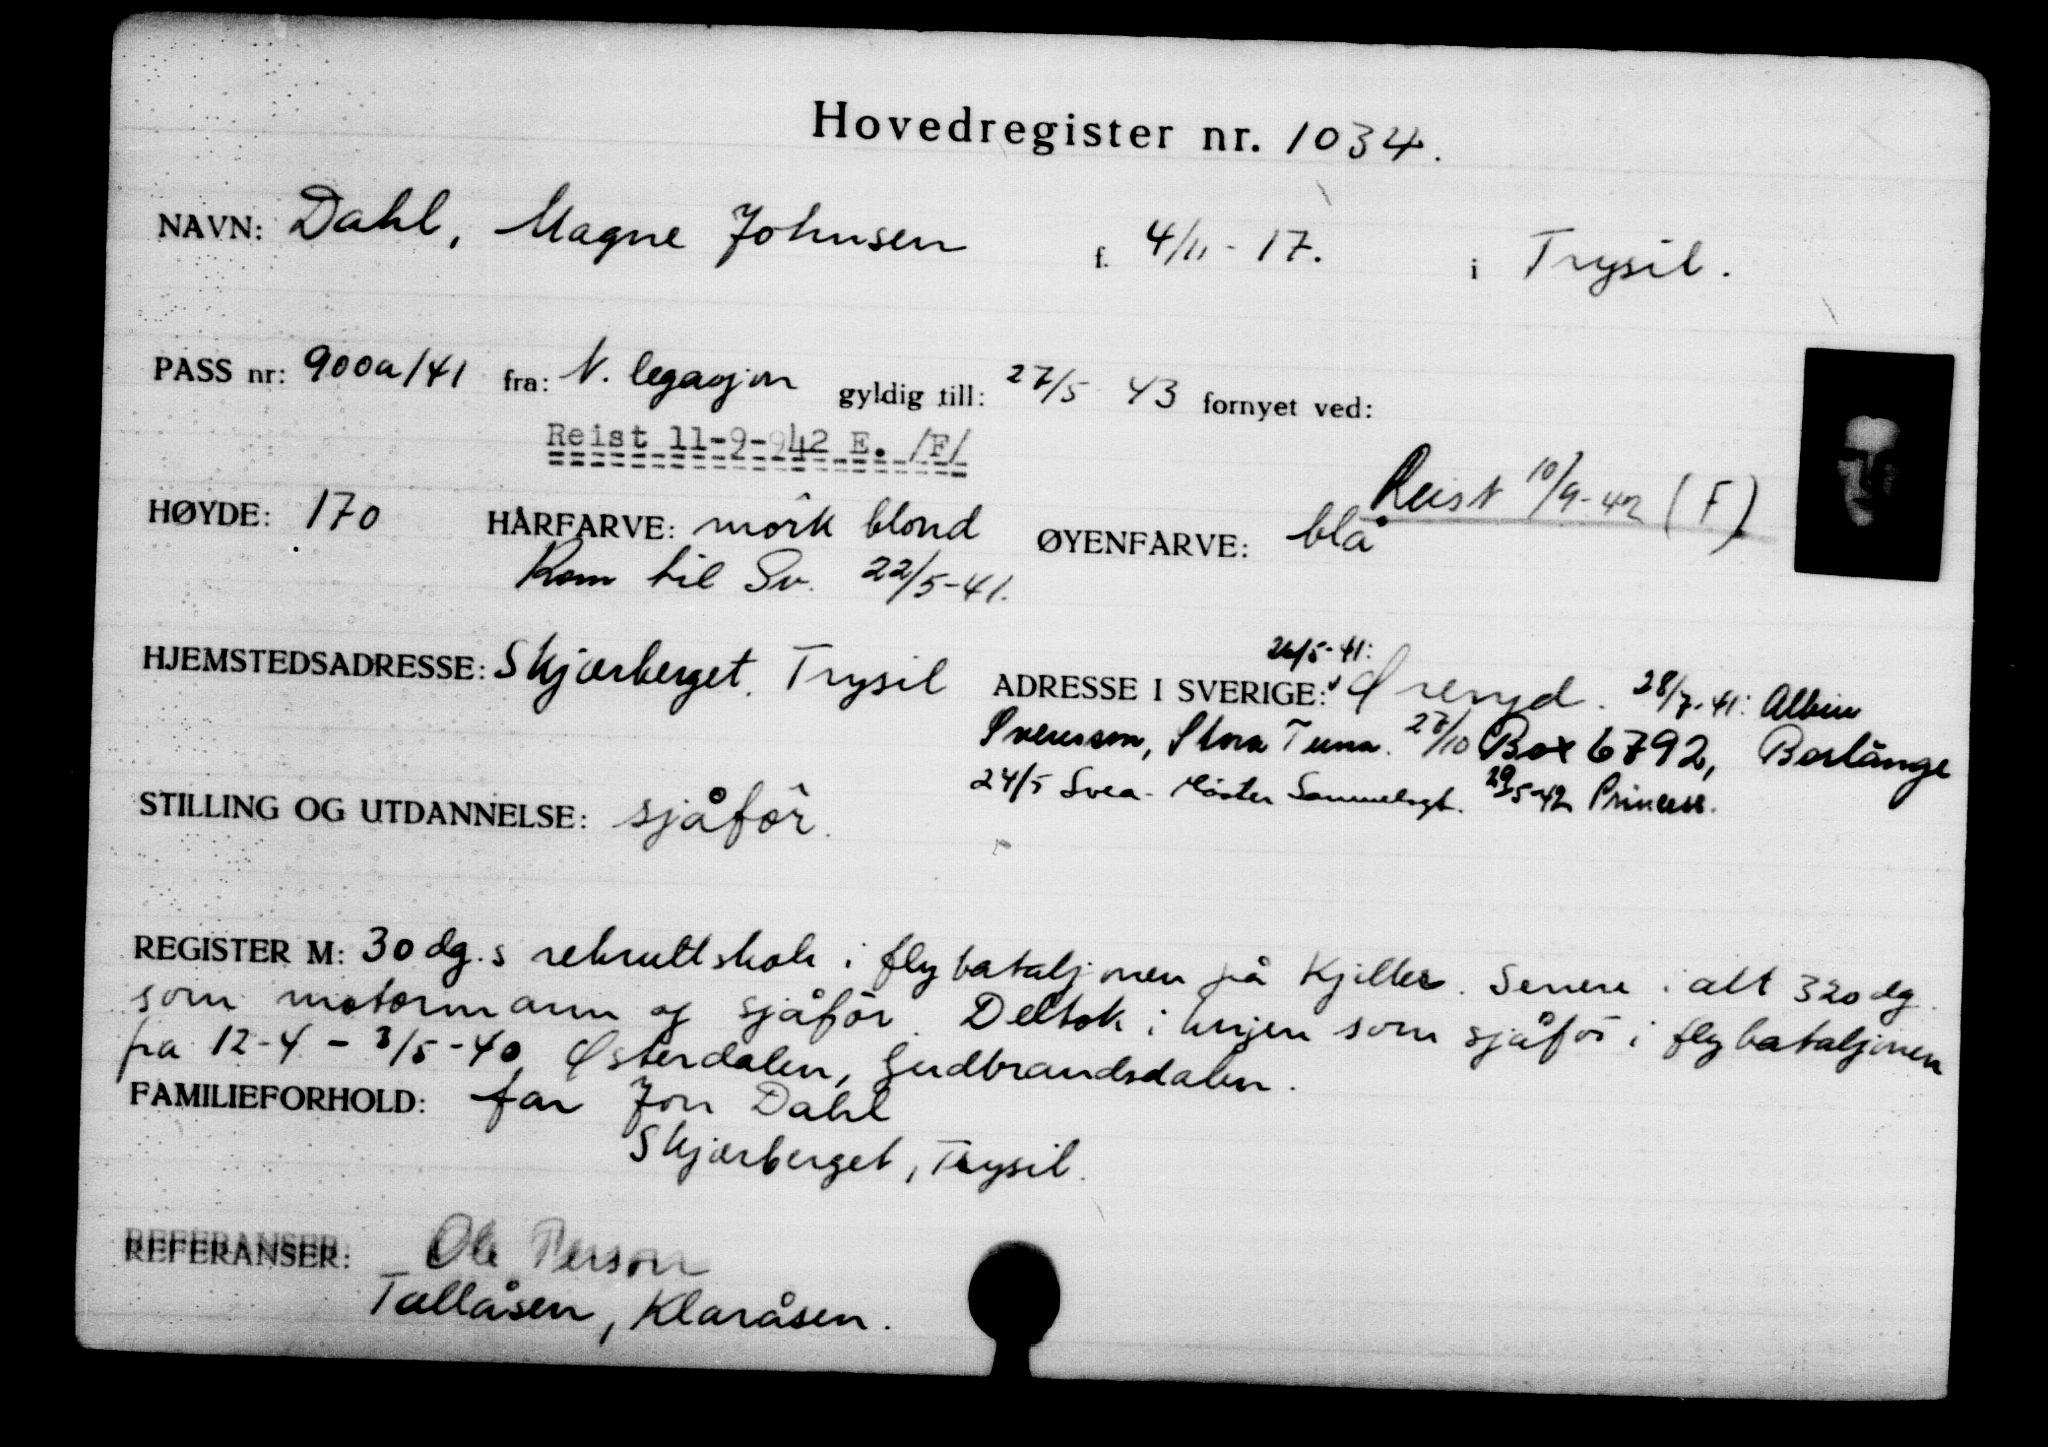 Hovedregister nr. 1034.
NAVN: Dahl, Magne Johnsen f. 4/11-17. i Trysil.
PASS nr: 900a/41 fra: N. legasjon gyldig till: 27/5 43 fornyet ved:
Reist 11-9-942 E. /F/
Reist 10/9-42 (F)
HØYDE: 170 HÅRFARVE: mörk blond ØYENFARVE: blå
Kom til Sv. 22/5-41.
26/5-41:
HJEMSTEDSADRESSE: Skjærberget, Trysil ADRESSE I SVERIGE: Øreryd. 28/7-41: Albin
Svensson, Stora Tuna. 27/10 Box 6792, Borlänge
24/5 Svea- 29/5-42 Princess.
STILLING OG UTDANNELSE: sjåför.
REGISTER M: 30 dg.s rekruttskole i flybataljonen på Kjeller. Senere i alt 320 dg.
som motormann og sjåför. Deltok i krigen som sjåför i flybataljonen
fra 12-4 - 3/5-40, Østerdalen, Gudbrandsdalen.
FAMILIEFORHOLD: far Jon Dahl
Skjærberget, Trysil.
REFERANSER: Ole Person
Tallåsen, Klaråsen.